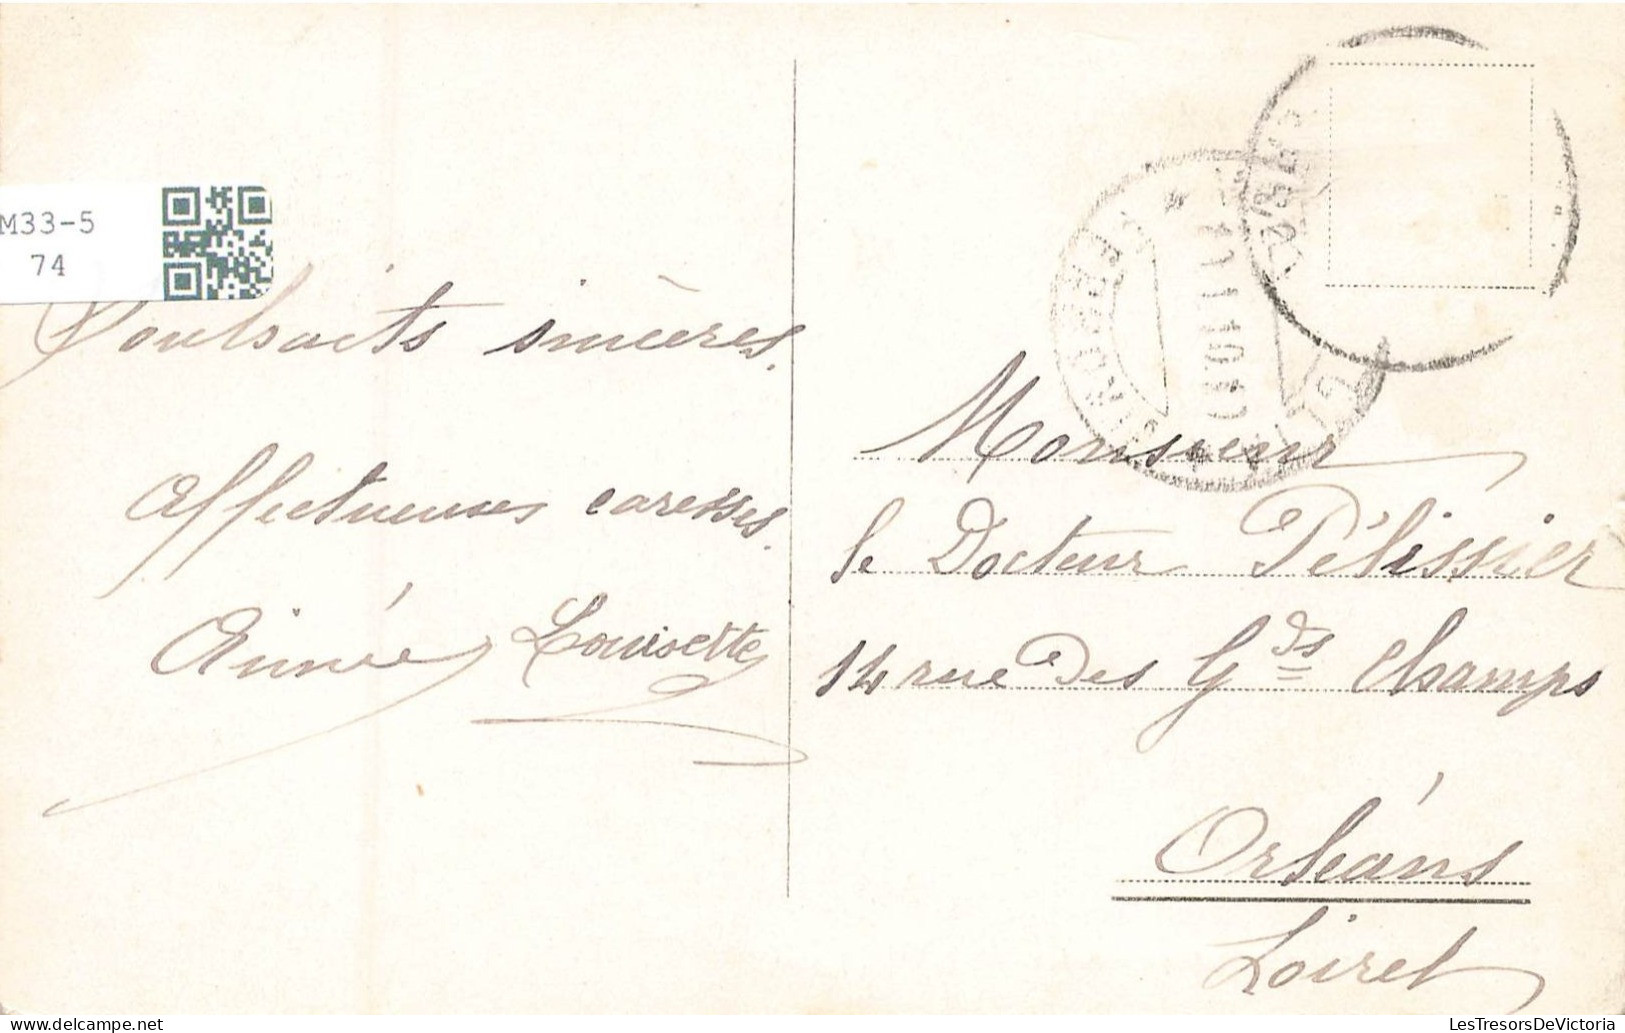 M33-5
74
Souhaits sincères.
Affectueuses caresses.
Aimée Louisette
Monsieur
le Docteur Pélissier
14 rue des Gds Champs
Orléans
Loiret
LesTresorsDeVictoria